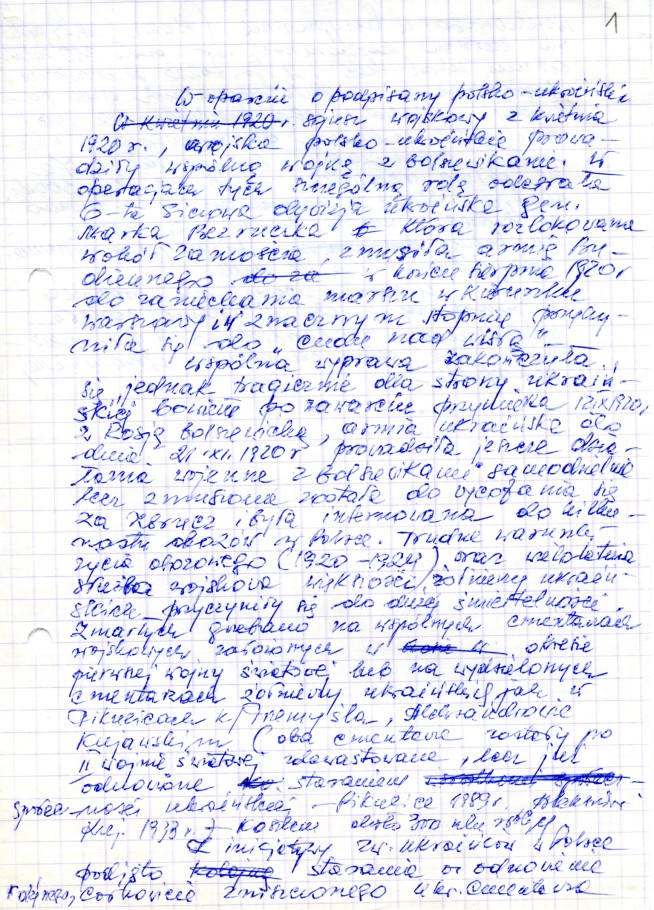 1
W oparciu o podpisany polsko-ukraiński
W kwietniu 1920 r. sojusz wojskowy z kwietnia
1920 r., wojska polsko-ukraińskie prowa-
dziły wspólną wojnę z bolszewikami. W
operacjach tych szczególną rolę odegrała
6-ta Siczowa dywizja ukraińska gen.
Marka Bezruczka która rozlokowana
wokół Zamościa, zmusiła armię Bu-
diennego do za w końcu sierpnia 1920 r
do zaniechania marszu w kierunku
Warszawy i w znacznym stopniu przyczy-
niła się do "cudu nad Wisłą" -
Wspólna wyprawa zakończyła
się jednak tragicznie dla strony ukraiń-
skiej bowiem po zawarciu przymierza 12.X.1920 r
z Rosją bolszewicką, armia ukraińska do
dnia 21.XI.1920 r prowadziła jeszcze dzia-
łania wojenne z bolszewikami samodzielnie
lecz zmuszona została do wycofania się
za Zbrucz i była internowana do kilku-
nastu obozów w Polsce. Trudne warunki
życia obozowego (1920-1924) oraz wieloletnia
służba wojskowa większości żołnierzy ukraiń-
skich przyczyniły się do dużej śmiertelności.
Zmarłych grzebano na wspólnych cmentarzach
wojskowych założonych w okresie
pierwszej wojny światowej lub na wydzielonych
cmentarzach żołnierzy ukraińskiej jak w
Pikulicach k/Przemyśla, Aleksandrowie
Kujawskim (oba cmentarze zostały po
II wojnie światowej zdewastowane, lecz już
odnowione staraniem
społecz-ności ukraińskiej - Pikulice 1989 r. Aleksandr.
Kuj. 1993 r.) kosztem około 300 mln
Z inicjatywy Zw. Ukraińców w Polsce
podjęto kolejne starania o odnowienie
kolejnego, całkowicie zniszczonego ukr. cmentarza